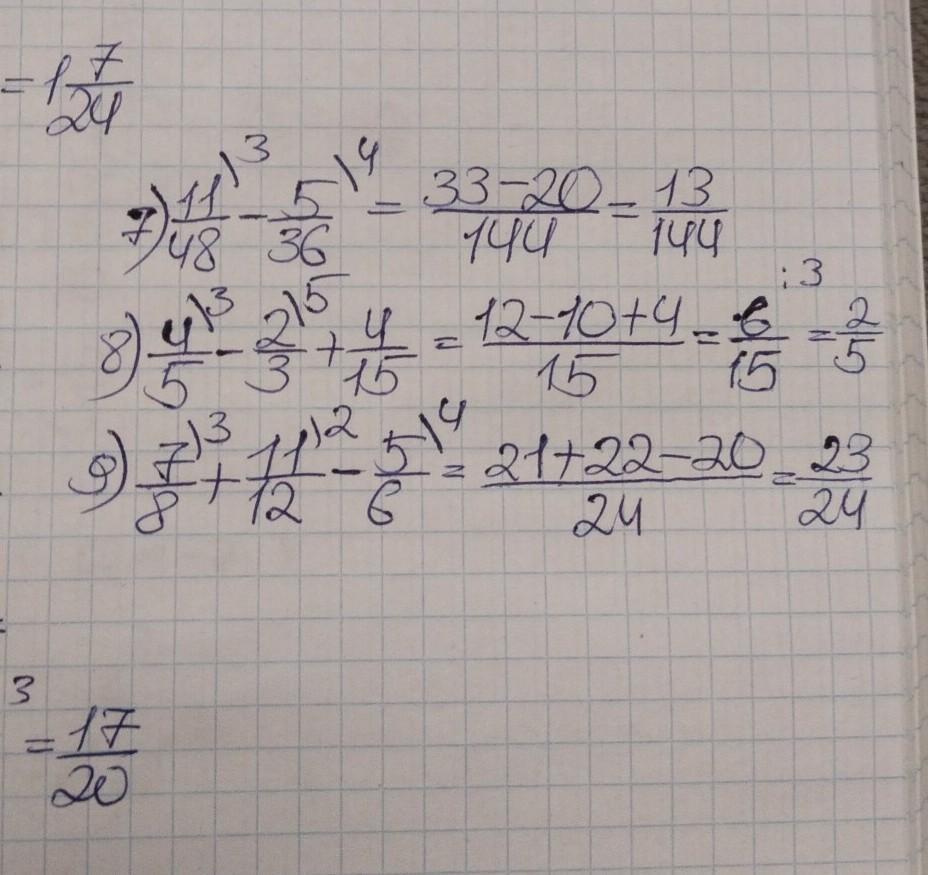 = 1 7/24
7) 11/48 \3 - 5/36 \4 = 33-20/144 = 13/144
8) 4/5 \3 - 2/3 \5 + 4/15 = 12-10+4/15 = 6/15 :3 = 2/5
9) 7/8 \3 + 11/12 \2 - 5/6 \4 = 21+22-20/24 = 23/24
3
= 17/20